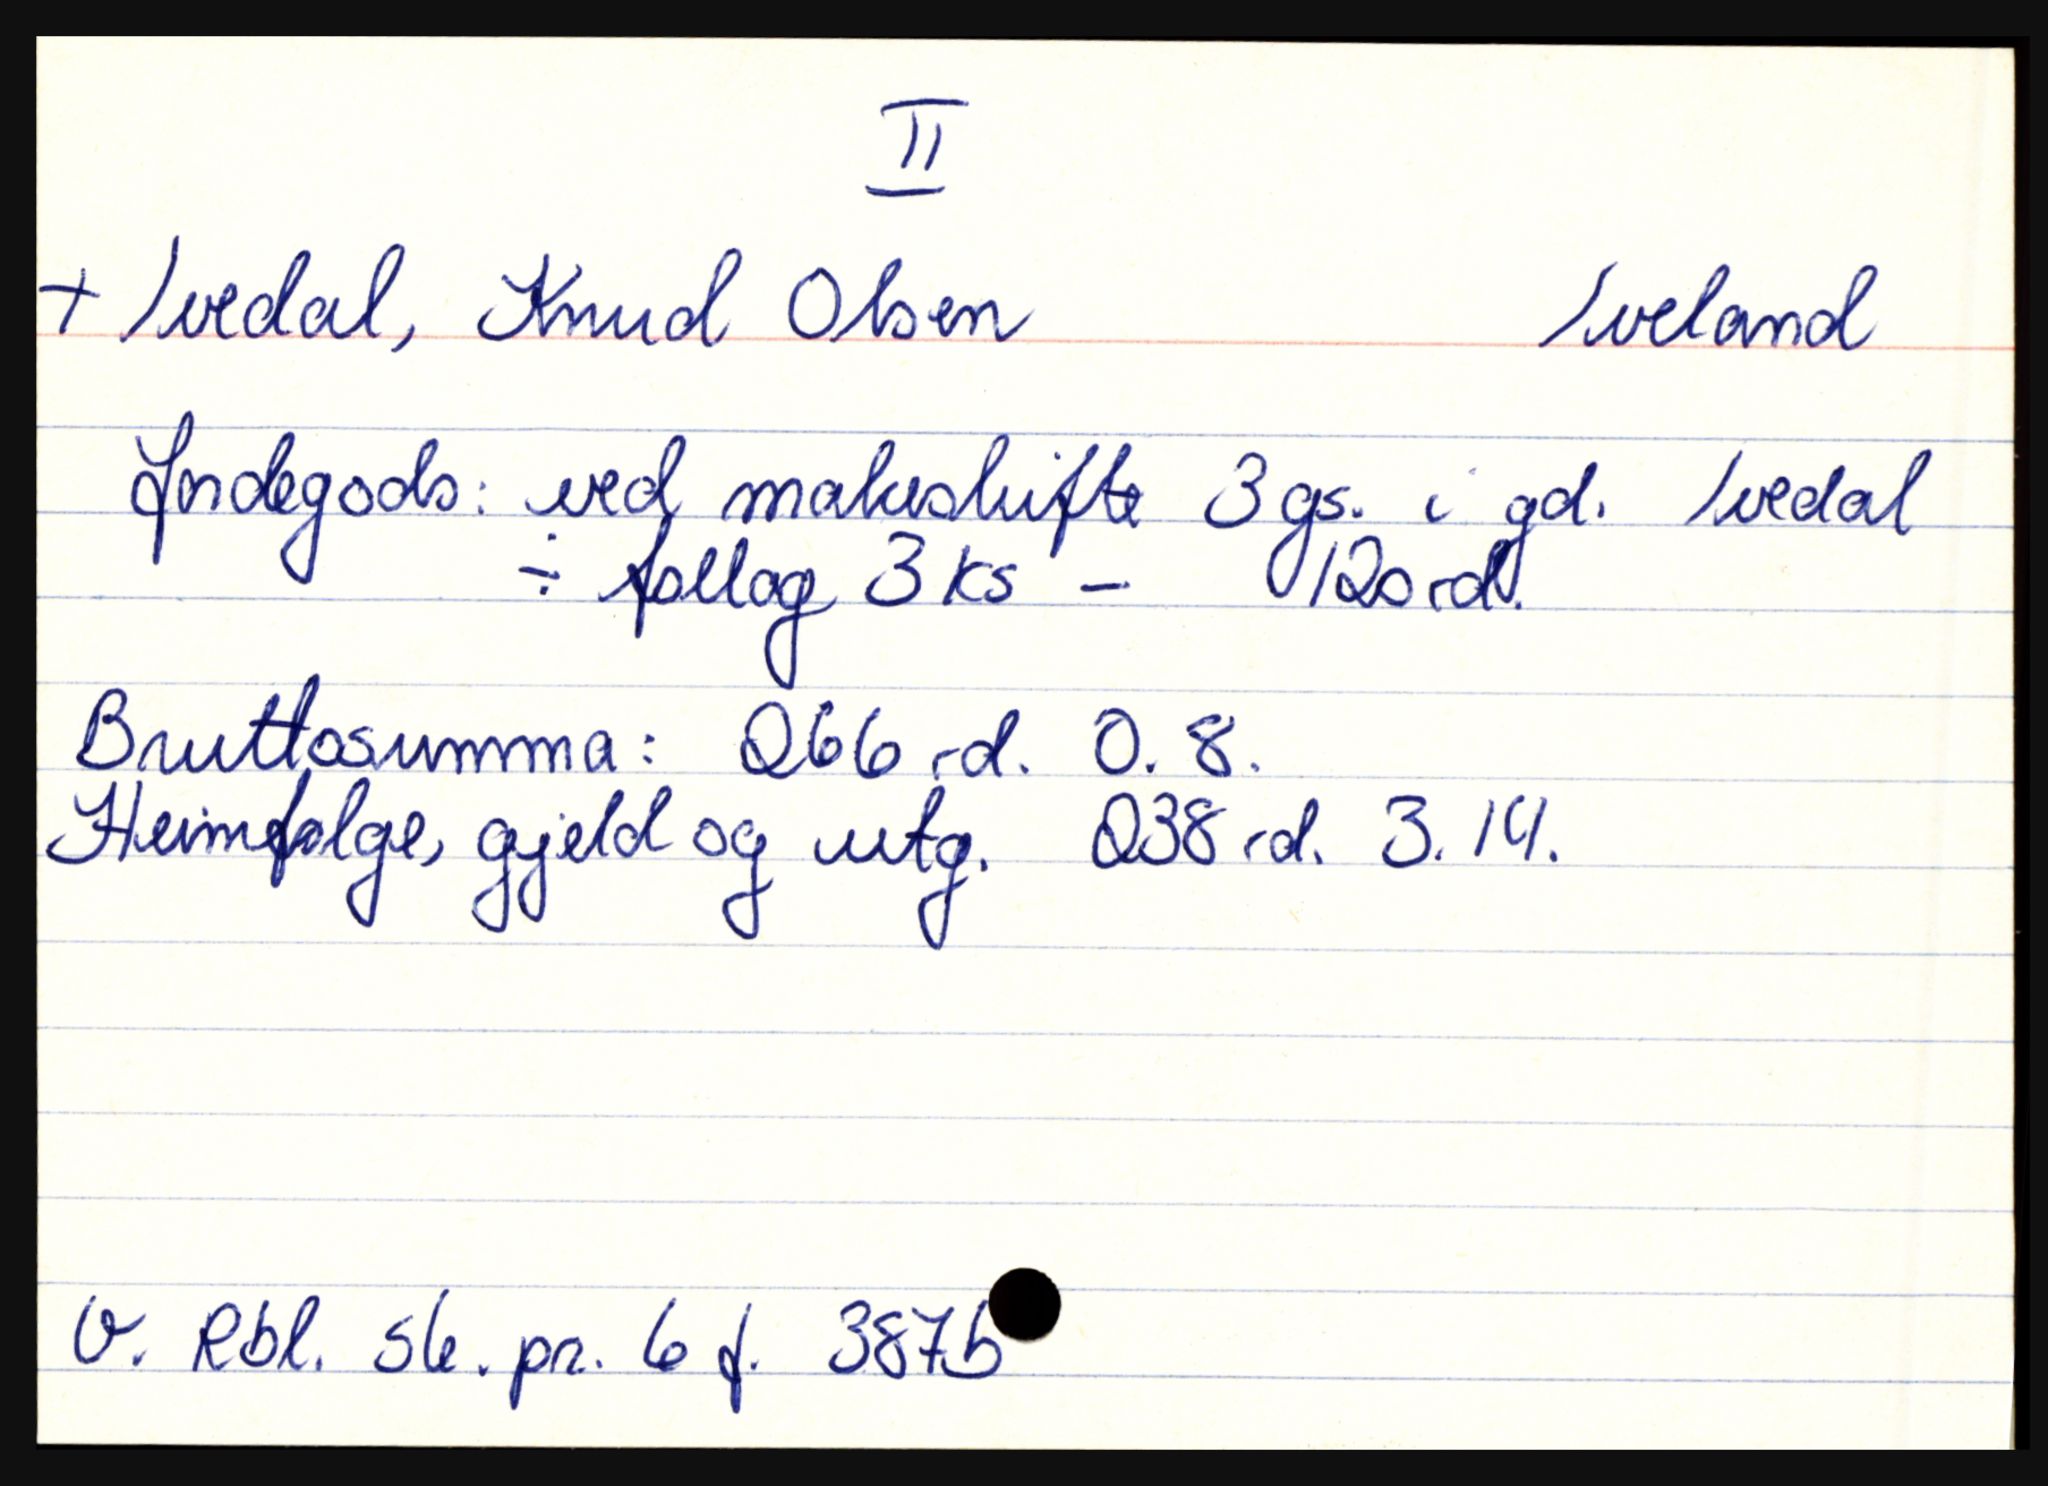 II
+ Ivedal, Knud Olsen Iveland
Jordegods: ved makeskifte 3 gs. i gd. Ivedal
÷ follog 3 ks - 120 rd.
Bruttosumma: 266 rd. 0. 8.
Heimefølge, gjeld og utg. 238 rd. 3. 14.
V. Rbl. sk. pr. 6 f. 387b